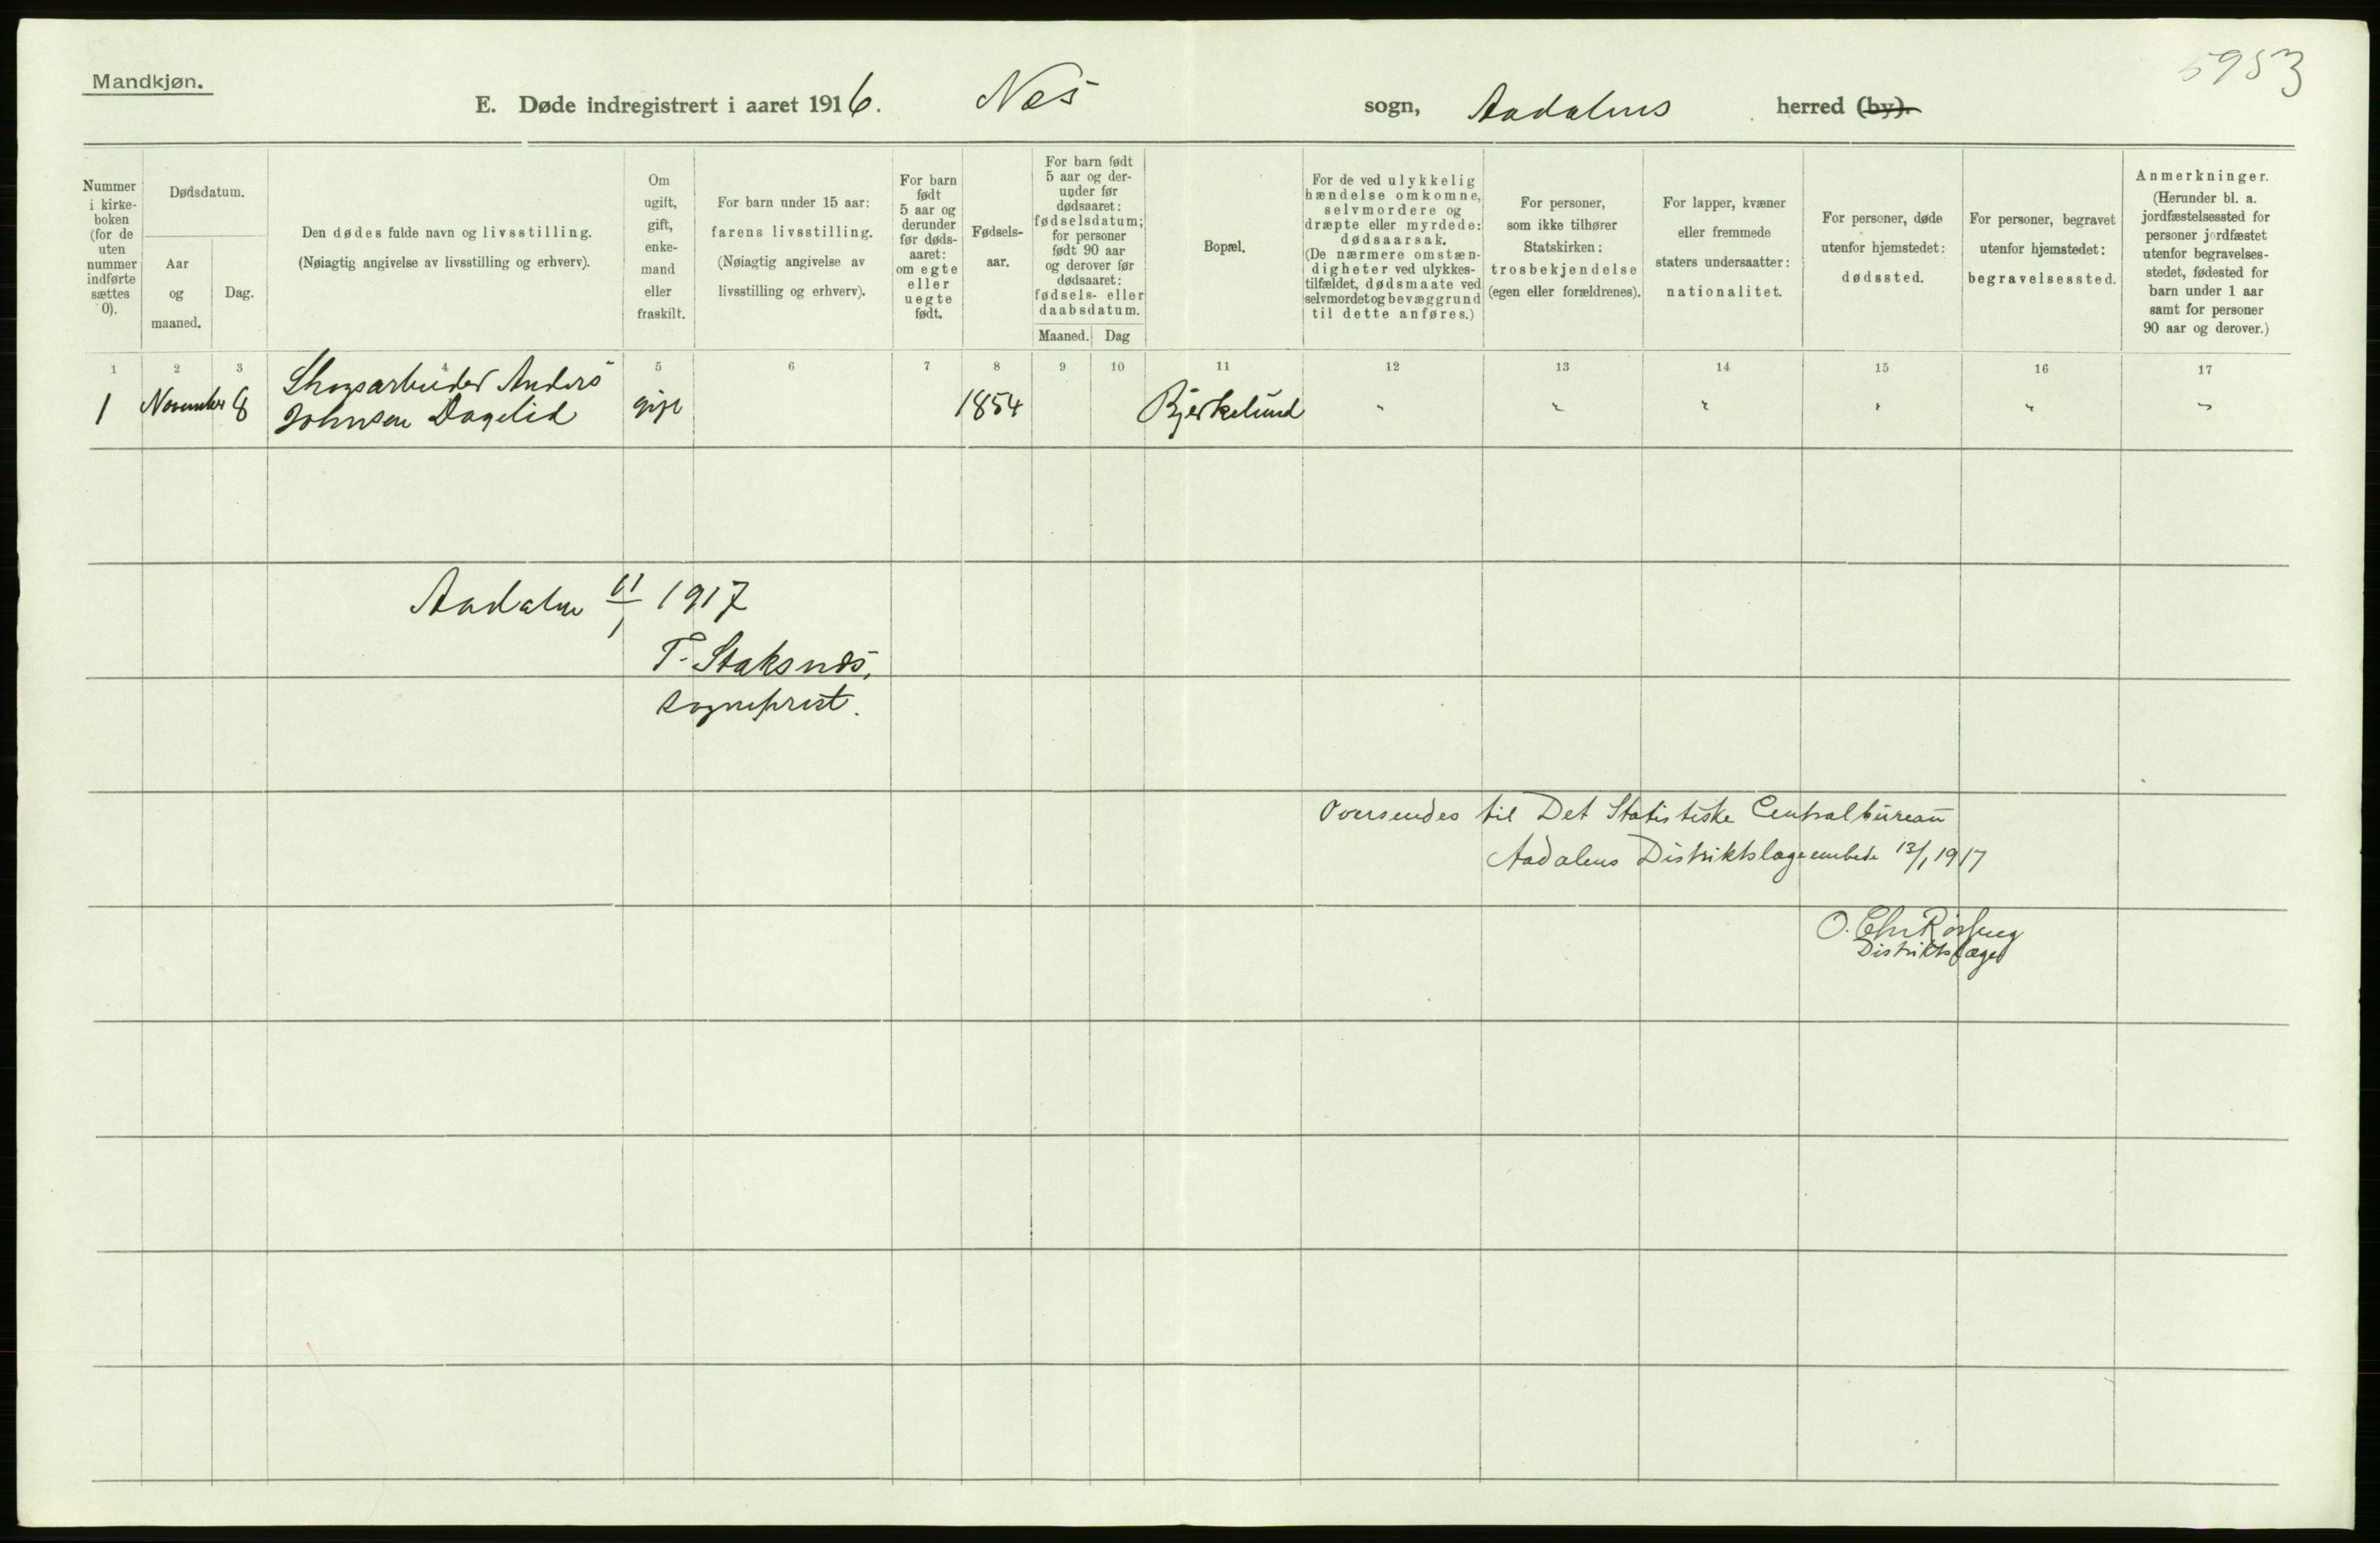 5953
Mandkjøn.
E. Døde indregistrert i aaret 1916. Nes sogn, Aadalens herred (by).
Nummer
i kirke-
boken
(for de
uten
nummer
indførte
sættes
0).
Dødsdatum.
Aar
og
maaned.
Dag.
Den dødes fulde navn og livsstilling.
(Nøiagtig angivelse av livsstilling og erhverv).
Om
ugift,
gift,
enke-
mand
eller
fraskilt.
For barn under 15 aar:
farens livsstilling.
(Nøiagtig angivelse av
livsstilling og erhverv).
For barn
født
5 aar og
derunder
før døds-
aaret:
om egte
eller
uegte
født.
Fødsels-
aar.
For barn født
5 aar og der-
under før
dødsaaret:
fødselsdatum;
for personer
født 90 aar
og derover før
dødsaaret:
fødsels- eller
daabsdatum.
Maaned. Dag
Bopæl.
For de ved ulykkelig
hændelse omkomne,
selvmordere og
dræpte eller myrdede:
dødsaarsak.
(De nærmere omstæn-
digheter ved ulykkes-
tilfældet, dødsmaate ved
selvmordet og bevæggrund
til dette anføres.)
For personer,
som ikke tilhører
Statskirken:
trosbekjendelse
(egen eller forældrenes).
For lapper, kvæner
eller fremmede
staters undersaatter:
nationalitet.
For personer, døde
utenfor hjemstedet:
dødssted.
For personer, begravet
utenfor hjemstedet:
begravelsessted.
Anmerkninger.
(Herunder bl. a.
jordfæstelsessted for
personer jordfæstet
utenfor begravelses-
stedet, fødested for
barn under 1 aar
samt for personer
90 aar og derover.)
1 2 3 4 5 6 7 8 9 10 11 12 13 14 15 16 17
Skogsarbeider Anders
1 November 8 Johnsen Dagelid gift 1854 Bjerkelund " " " " " "
Aadalen 11/1 1917
T. Staksnæs,
sogneprest.
Oversendes til Det Statistiske Centralbureau
Aadalens Distriktslægeembede 13/1 1917
O. Chr
Distriktslæge